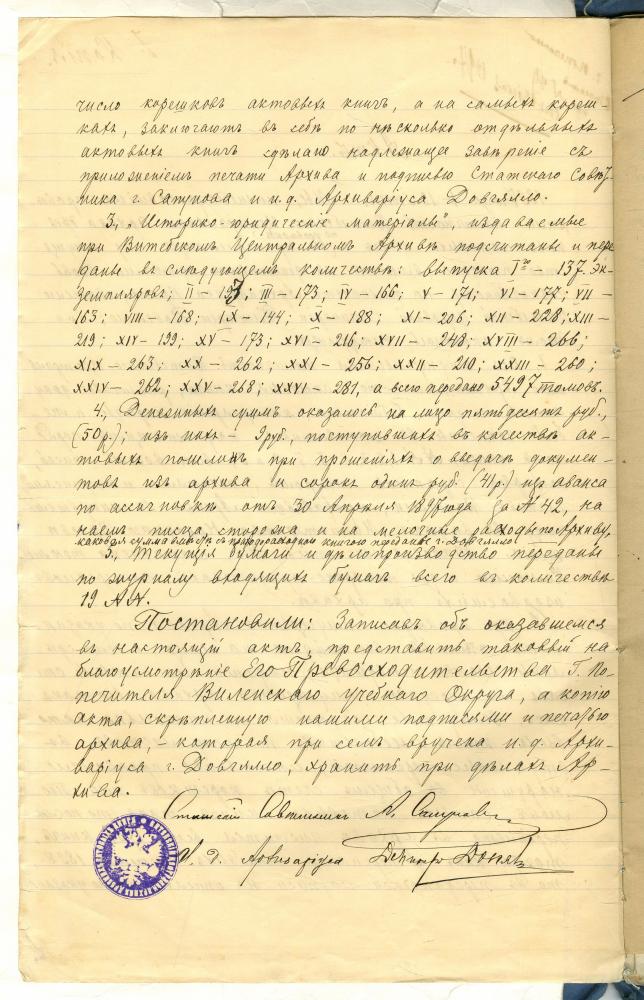 число корешковъ актовыхъ книгъ, а на самыхъ кореш-
кахъ, заключаютъ въ себѣ по нѣсколько отдѣльныхъ
актовыхъ книгъ сдѣлано надлежащее завѣреніе съ
приложеніемъ печати Архива и подписью Статскаго Совѣт-
ника г. Сапунова и и.д. Архиваріуса Довгялло.
3., "Историко-юридическіе матеріалы", издаваемые
при Витебскомъ Центральномъ Архивѣ подсчитаны и пере
даны въ слѣдующемъ количествѣ: выпуска I го – 137 эк-
земпляровъ; II – 137; III – 173; IV – 166; V – 171; VI – 177; VII –
163; VIII – 168; IX – 144; X – 188; XI – 206; XII – 228; XIII –
219; XIV – 199; XV – 173; XVI – 216; XVII – 248; XVIII – 266;
XIX – 263; XX – 262; XXI – 256; XXII – 210; XXIII – 260;
XXIV – 262; XXV – 268; XXVI – 281, а всего передано 5497 томовъ.
4., Денежныхъ суммъ оказалось на лицо пятьдесятъ руб.,
(50 р.); изъ нихъ – 9 руб., поступившихъ въ качествѣ ак-
товыхъ пошлинъ при прошеніяхъ о выдачѣ докумен-
товъ изъ архива и сорокъ одинъ руб. (41 р.) изъ аванса
по ассигновкѣ отъ 30 Апрѣля 1897 года за № 42, на
наемъ писца, сторожа и на мелочные расходы по Архиву,
каковая сумма вмѣстѣ съ приходорасходной книгою передана г. Довгялло.
5., Текущія бумаги и дѣлопроизводство переданы
по журналу входящихъ бумагъ всего въ количествѣ
19 №№.
Постановили: Записавъ объ оказавшемся
въ настоящій актъ, представить таковый на
благоусмотрѣніе Его Превосходительства Г. По-
печителя Виленскаго Учебнаго Округа, а копію
акта, скрѣпленную нашими подписями и печатью
архива, – которая при семъ вручена и.д. Архи-
варіуса г. Довгялло, хранить при дѣлахъ Ар-
хива.
Статскій Совѣтникъ А. Сапуновъ
И. д. Архиваріуса Дмитр Довгялло